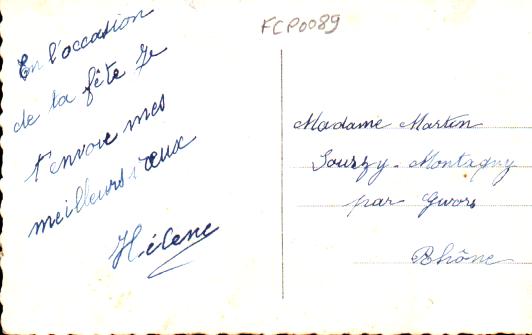 FCP0089
En l'occasion
de ta fête Je
t'envoie mes
meilleurs vœux
Hélène
Madame Martin
Sourzy-Montagny
par Givors
Rhône